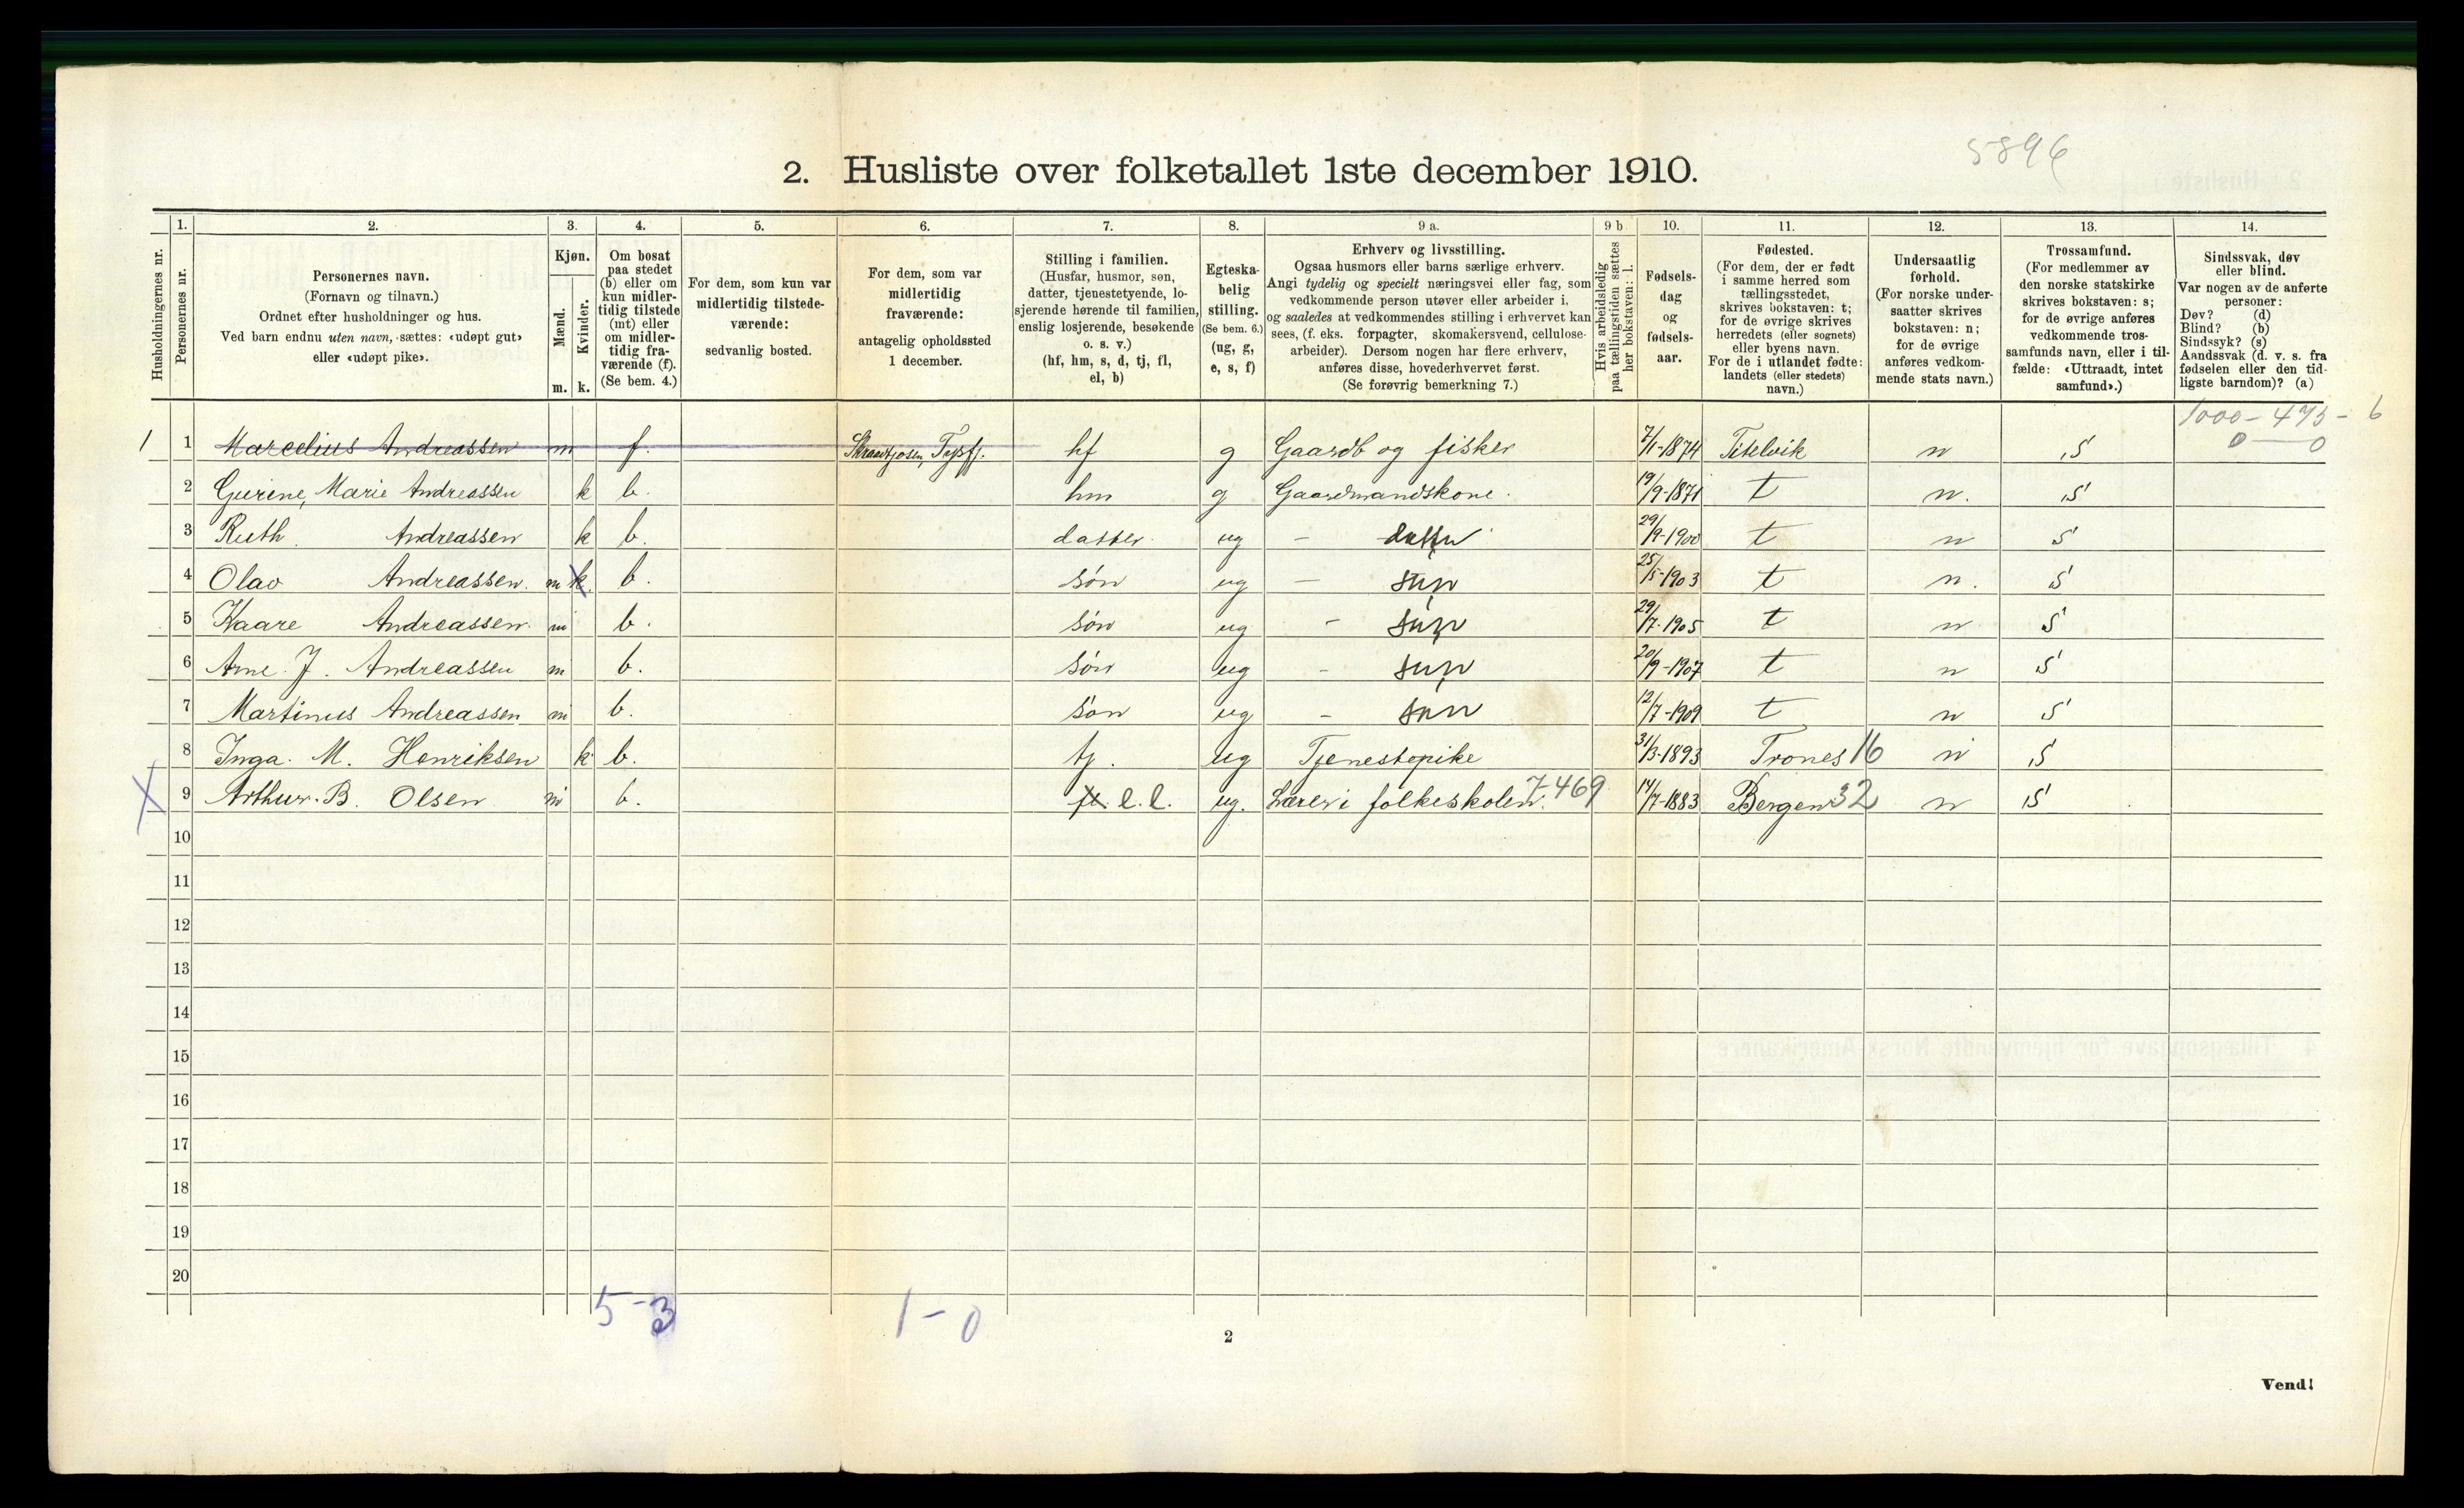 5896
2. Husliste over folketallet 1ste december 1910.
1. 2. 3. 4. 5. 6. 7. 8. 9 a. 9 b 10. 11. 12. 13. 14.
Husholdningernes nr.
Personernes nr.
Personernes navn.
(Fornavn og tilnavn.)
Ordnet efter husholdninger og hus.
Ved barn endnu uten navn, sættes: «udøpt gut»
eller «udøpt pike».
Kjøn.
Mænd.
Kvinder.
m. k.
Om bosat
paa stedet
(b) eller om
kun midler-
tidig tilstede
(mt) eller
om midler-
tidig fra-
værende (f).
(Se bem. 4.)
For dem, som kun var
midlertidig tilstede-
værende:
sedvanlig bosted.
For dem, som var
midlertidig
fraværende:
antagelig opholdssted
1 december.
Stilling i familien.
(Husfar, husmor, søn,
datter, tjenestetyende, lo-
sjerende hørende til familien,
enslig losjerende, besøkende
o. s. v.)
(hf, hm, s, d, tj, fl,
el, b)
Egteska-
belig
stilling.
(Se bem. 6.)
(ug, g,
e, s, f)
Erhverv og livsstilling.
Ogsaa husmors eller barns særlige erhverv.
Angi tydelig og specielt næringsvei eller fag, som
vedkommende person utøver eller arbeider i,
og saaledes at vedkommendes stilling i erhvervet kan
sees, (f. eks. forpagter, skomakersvend, cellulose-
arbeider). Dersom nogen har flere erhverv,
anføres disse, hovederhvervet først.
(Se forøvrig bemerkning 7.)
Hvis arbeidsledig
paa tællingstiden sættes
her bokstaven: l.
Fødsels-
dag
og
fødsels-
aar.
Fødested.
(For dem, der er født
i samme herred som
tællingsstedet,
skrives bokstaven: t;
for de øvrige skrives
herredets (eller sognets)
eller byens navn.
For de i utlandet fødte:
landets (eller stedets)
navn.)
Undersaatlig
forhold.
(For norske under-
saatter skrives
bokstaven: n;
for de øvrige
anføres vedkom-
mende stats navn.)
Trossamfund.
(For medlemmer av
den norske statskirke
skrives bokstaven: s;
for de øvrige anføres
vedkommende tros-
samfunds navn, eller i til-
fælde: «Uttraadt, intet
samfund».)
Sindssvak, døv
eller blind.
Var nogen av de anførte
personer:
Døv? (d)
Blind? (b)
Sindssyk? (s)
Aandssvak (d. v. s. fra
fødselen eller den tid-
ligste barndom)? (a)
1000 - 475 - 6
0 — 0
1 1 Marcelius Andreassen m f. hf g Gaardb og fisker 7/1-1874 n S
2 Gurine Marie Andreassen k b. hm g Gaardmandskone. 19/9-1871 t n. S
3 Ruth Andreassen k b. datter ug - datter 29/9-1900 t n S
4 Olav Andreassen. m k. b. søn ug - søn 25/5-1903 t n. S
5 Kaare Andreassen. m b. søn ug - søn 29/7-1905 t n S
6 Arne J. Andreassen m b. søn ug - søn 20/9-1907 t n S
7 Martinus Andreassen m b. søn ug - søn 12/7-1909 t n S
8 Inga M. Henriksen k b. tj. ug Tjenestepike 31/3-1893 Trones 16 n S
X 9 Arthur B. Olsen m b. fl. e. l. ug. Lærer i folkeskolen. 7-469 14/7-1883 Bergen 32 n S
10
11
12
13
14
15
16
17
18
19
20
5-3 1-0
2
Vend!